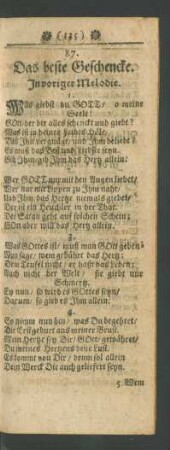 (135)
87.
Das beste Geschencke.
In voriger Melodie.
1.
Was giebst du GOTT / o meine
Seele!
GOtt der dir alles schenckt und giebt?
Was ist in deines Leibes Höle /
Das Ihn vergnügt / und Ihm beliebt?
Es muß das Best und Liebste seyn:
Gib Ihm / gib Ihm das Hertz allein!
2.
Wer GOTT nur mit den Augen liebet /
Wer nur mit Lippen zu Ihm naht /
Und Ihm das Hertze niemals giebet /
Der ist ein Heuchler in der That.
Der Satan geht auf solchen Schein;
GOtt aber will das Hertz allein.
3.
Was GOttes ist / muß man GOtt geben:
Nun sage / wem gehöret das Hertz?
Dem Teufel nicht / er haßt das Leben;
Auch nicht der Welt / sie giebt nur
Schmertz.
Ey nun / so wird es GOttes seyn /
Darum / so gieb es Ihm allein.
4.
So nimm nun hin / was Du begehret /
Die Erstgeburt aus meiner Brust.
Mein Hertze sey Dir / GOtt / gewähret /
Du meines Hertzens beste Lust.
Es kommt von Dir / drum sol allein
Dein Werck Dir auch geliefert seyn.
5. Wem